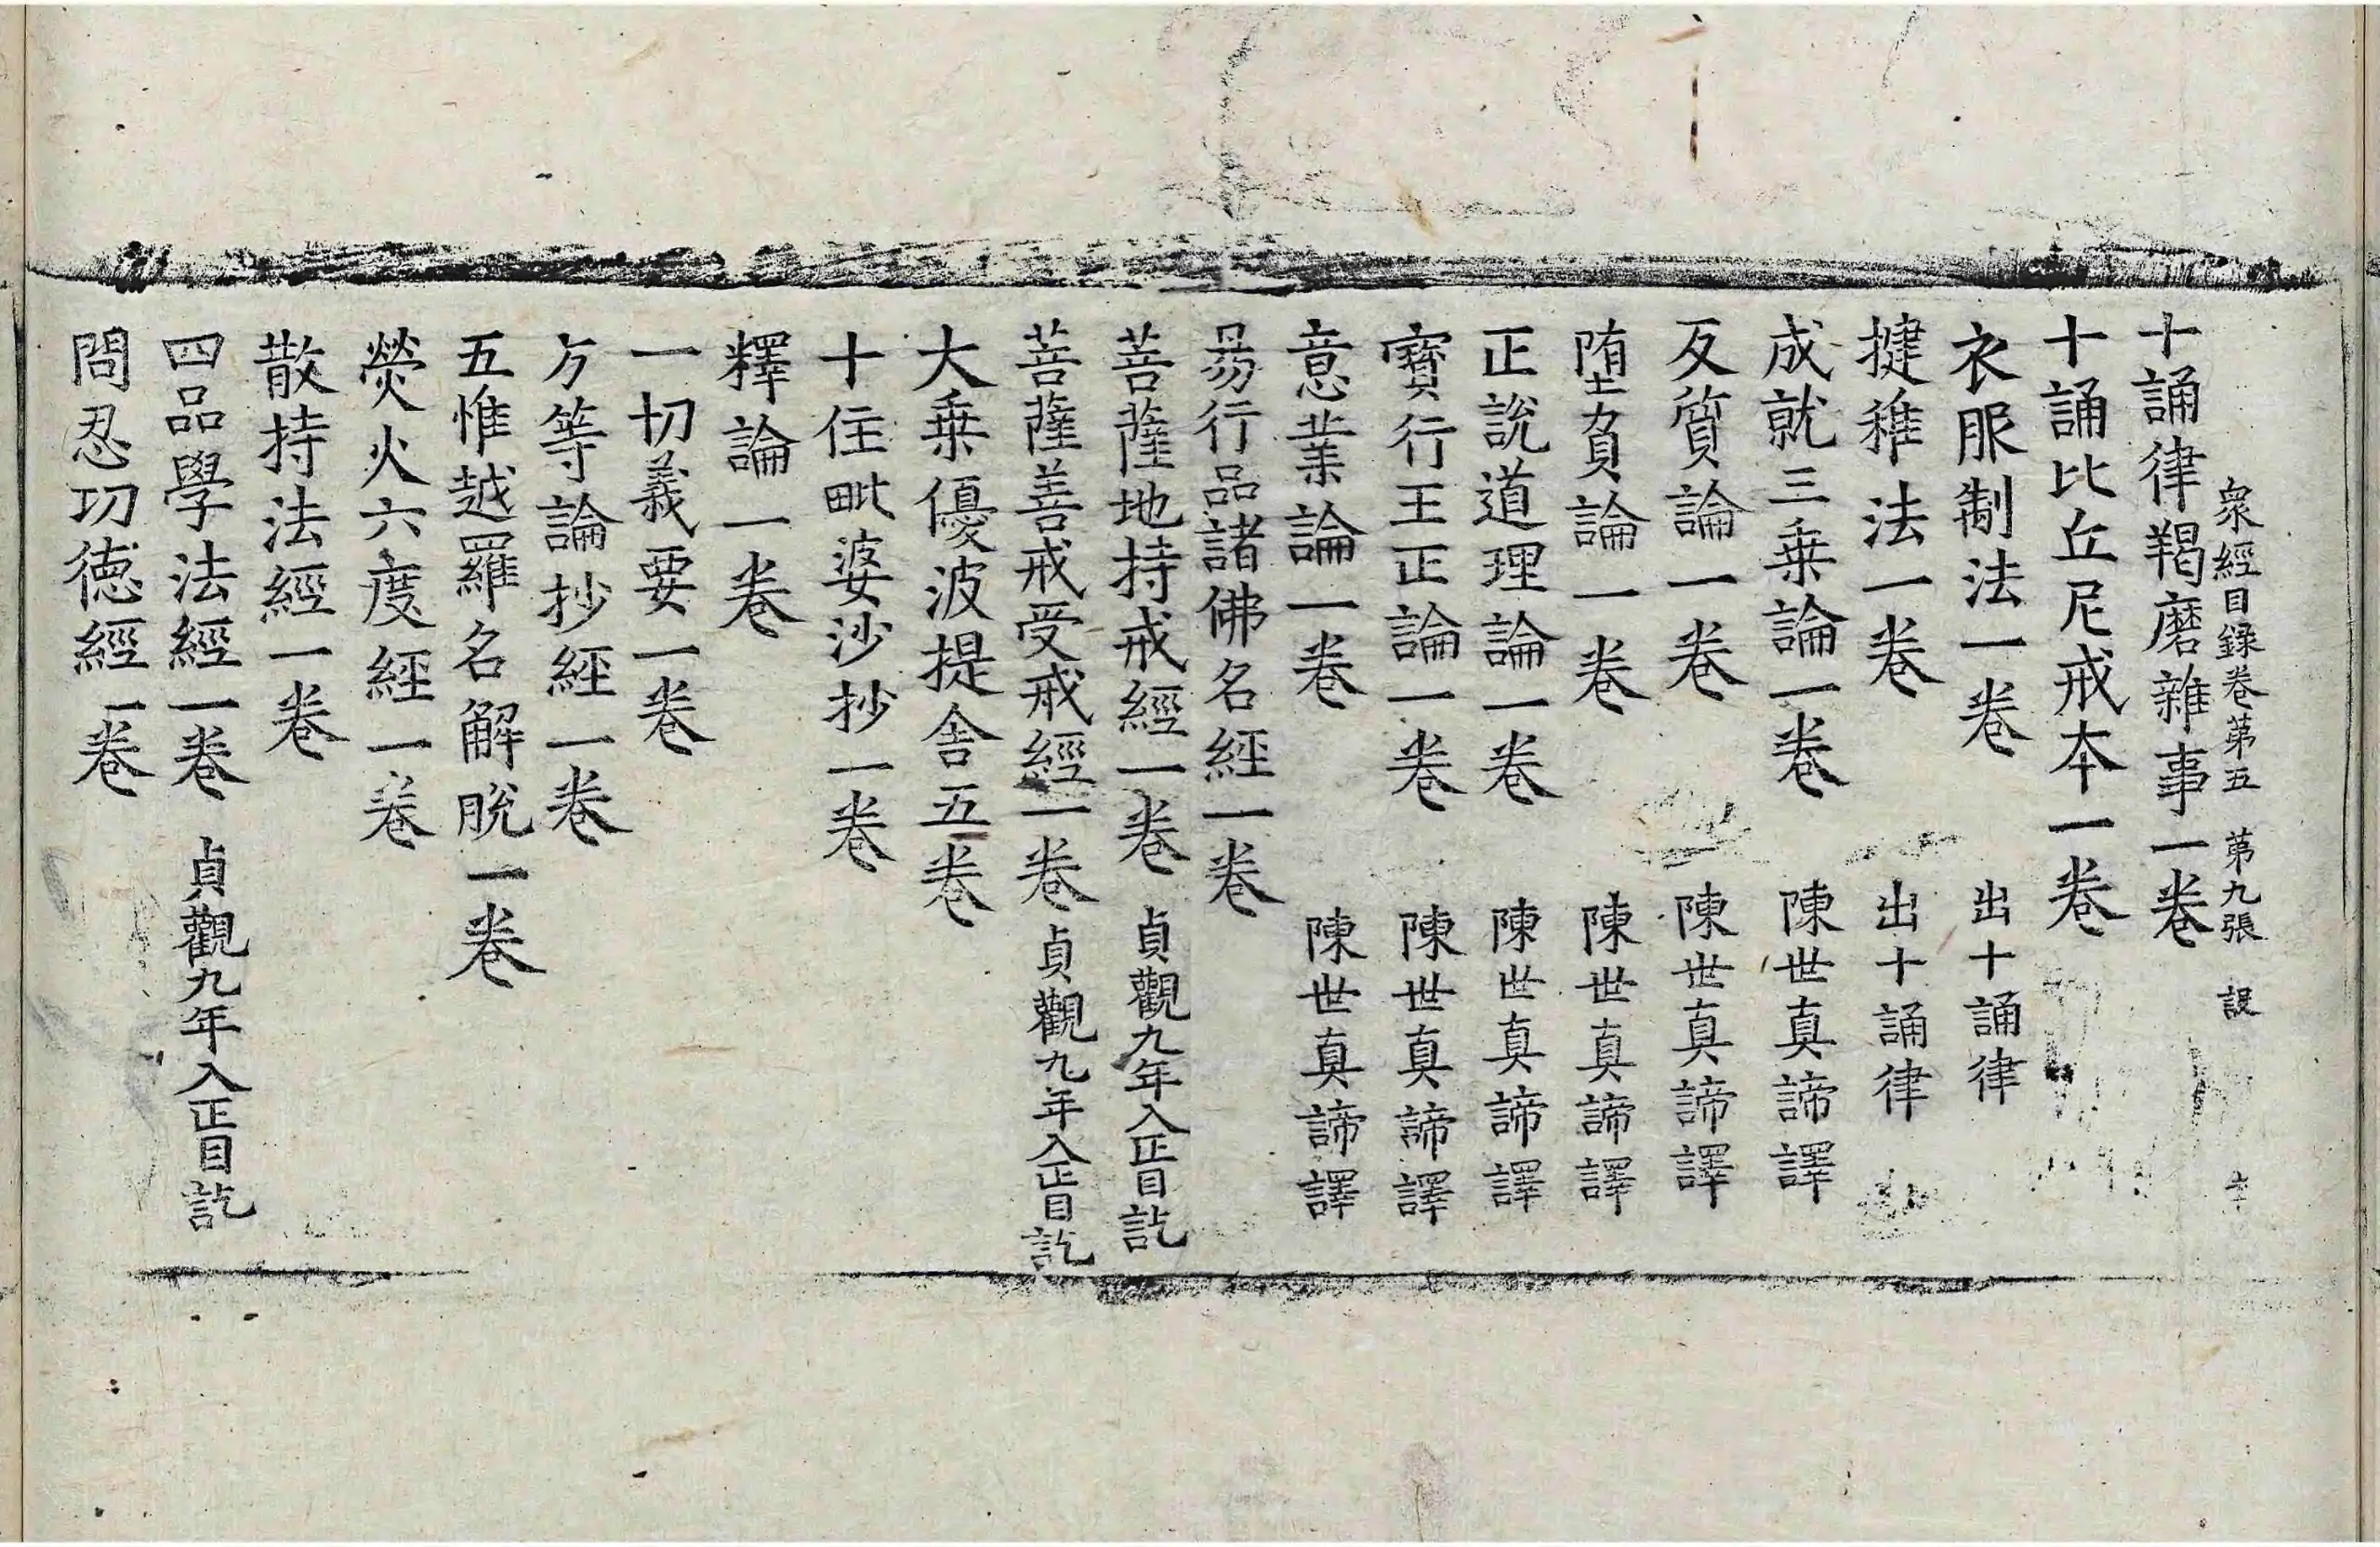 衆經目録卷苐五 苐九張 設
十誦律羯磨雜事一卷
十誦比丘尼戒本一卷
衣服制法一卷 出十誦律
揵稚法一卷 出十誦律
成就三乗論一卷 陳世真諦譯
反質論一卷 陳世真諦譯
堕負論一卷 陳世真諦譯
正說道理論一卷 陳世真諦譯
寶行王正論一卷 陳世真諦譯
意業論一卷 陳世真諦譯
昜行品諸佛名經一卷
菩薩地持戒經一卷 貞觀九年入正目訖
菩薩善戒受戒經一卷 貞觀九年入正目訖
大乗優波提舍五卷
十住毗婆沙抄一卷
釋論一卷
一切義要一卷
方等論抄経一卷
五惟越羅名解脫一卷
熒火六度経一卷
散持法經一卷
四品學法經一卷 貞觀九年入正目訖
問忍功徳經一卷